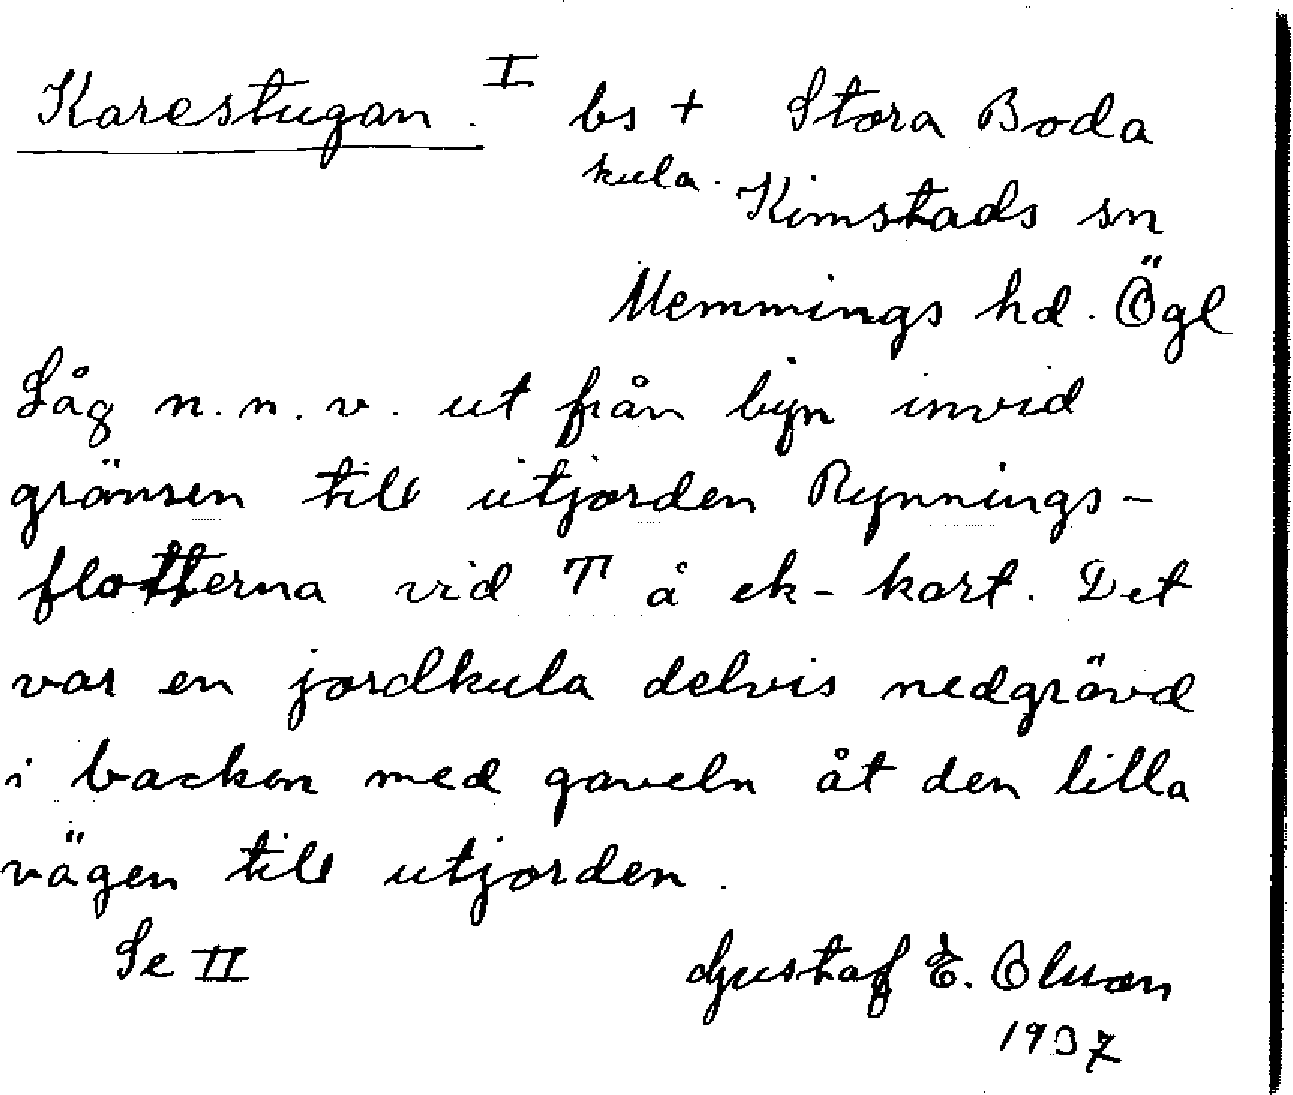 Karestugan. I bs + Stora Boda
kula. Kimstads sn
Memmings hd. Ögl
Låg n.n.v. ut från byn invid
gränsen till utjorden Rynnings-
flotterna vid T å ek-kart. Det
var en jordkula delvis nedgrävd
i backen med gaveln åt den lilla
vägen till utjorden.
Se II Gustaf E. Olsson
1937